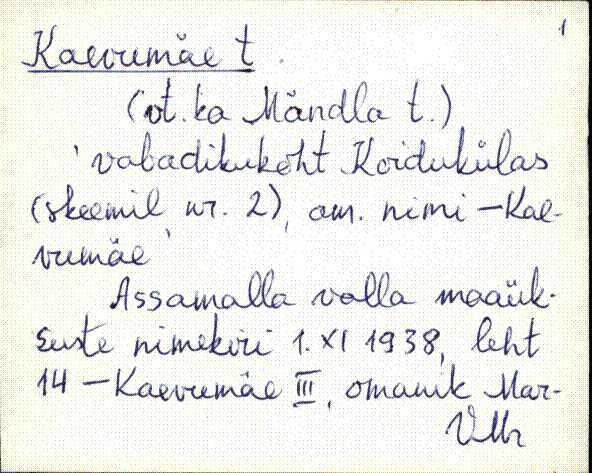 1
Kaevumäe t.
(vt. ka Mändla t.)
'vabadikukoht Koidukülas
(skeemil nr. 2), om. nimi – Kae-
vumäe'
Assamalla valla maaük-
suste nimekiri 1. XI 1938, leht
14 – Kaevumäe III, omanik Mar-